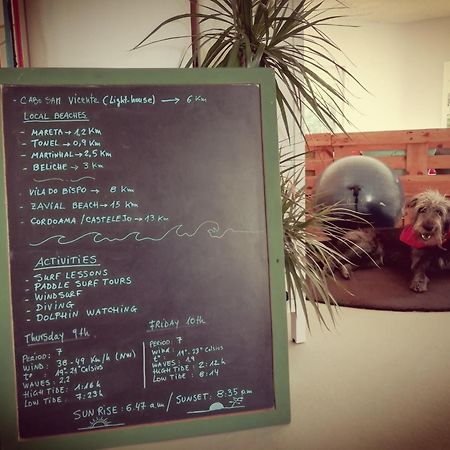 - CABO SAM VICENTE (Light-house) → 6 Km
LOCAL BEACHES
- MARETA → 1,2 Km
- TONEL → 0,9 Km
- MARTINHAL → 2,5 Km
- BELICHE → 3 Km
VILA DO BISPO → 8 Km
- ZAVIAL BEACH → 15 Km
- CORDOAMA / CASTELEJO → 13 Km
ACTIVITIES
- SURF LESSONS
- PADDLE SURF TOURS
- WINDSURF
- DIVING
- DOLPHIN WATCHING
Thursday 9th
PERIOD: 7
WIND: 38-49 Km/h (NW)
tº: 19º-21º Celsius
WAVES: 2.2
HIGH TIDE: 1:16 h
LOW TIDE: 7:23 h
FRIDAY 10th
PERIOD: 7
WIND:
tº: 19º-23º Celsius
WAVES: 1.9
HIGH TIDE: 2:12 h
LOW TIDE: 8:14
SUN RISE: 6:47 a.m / SUNSET: 8:35 p.m